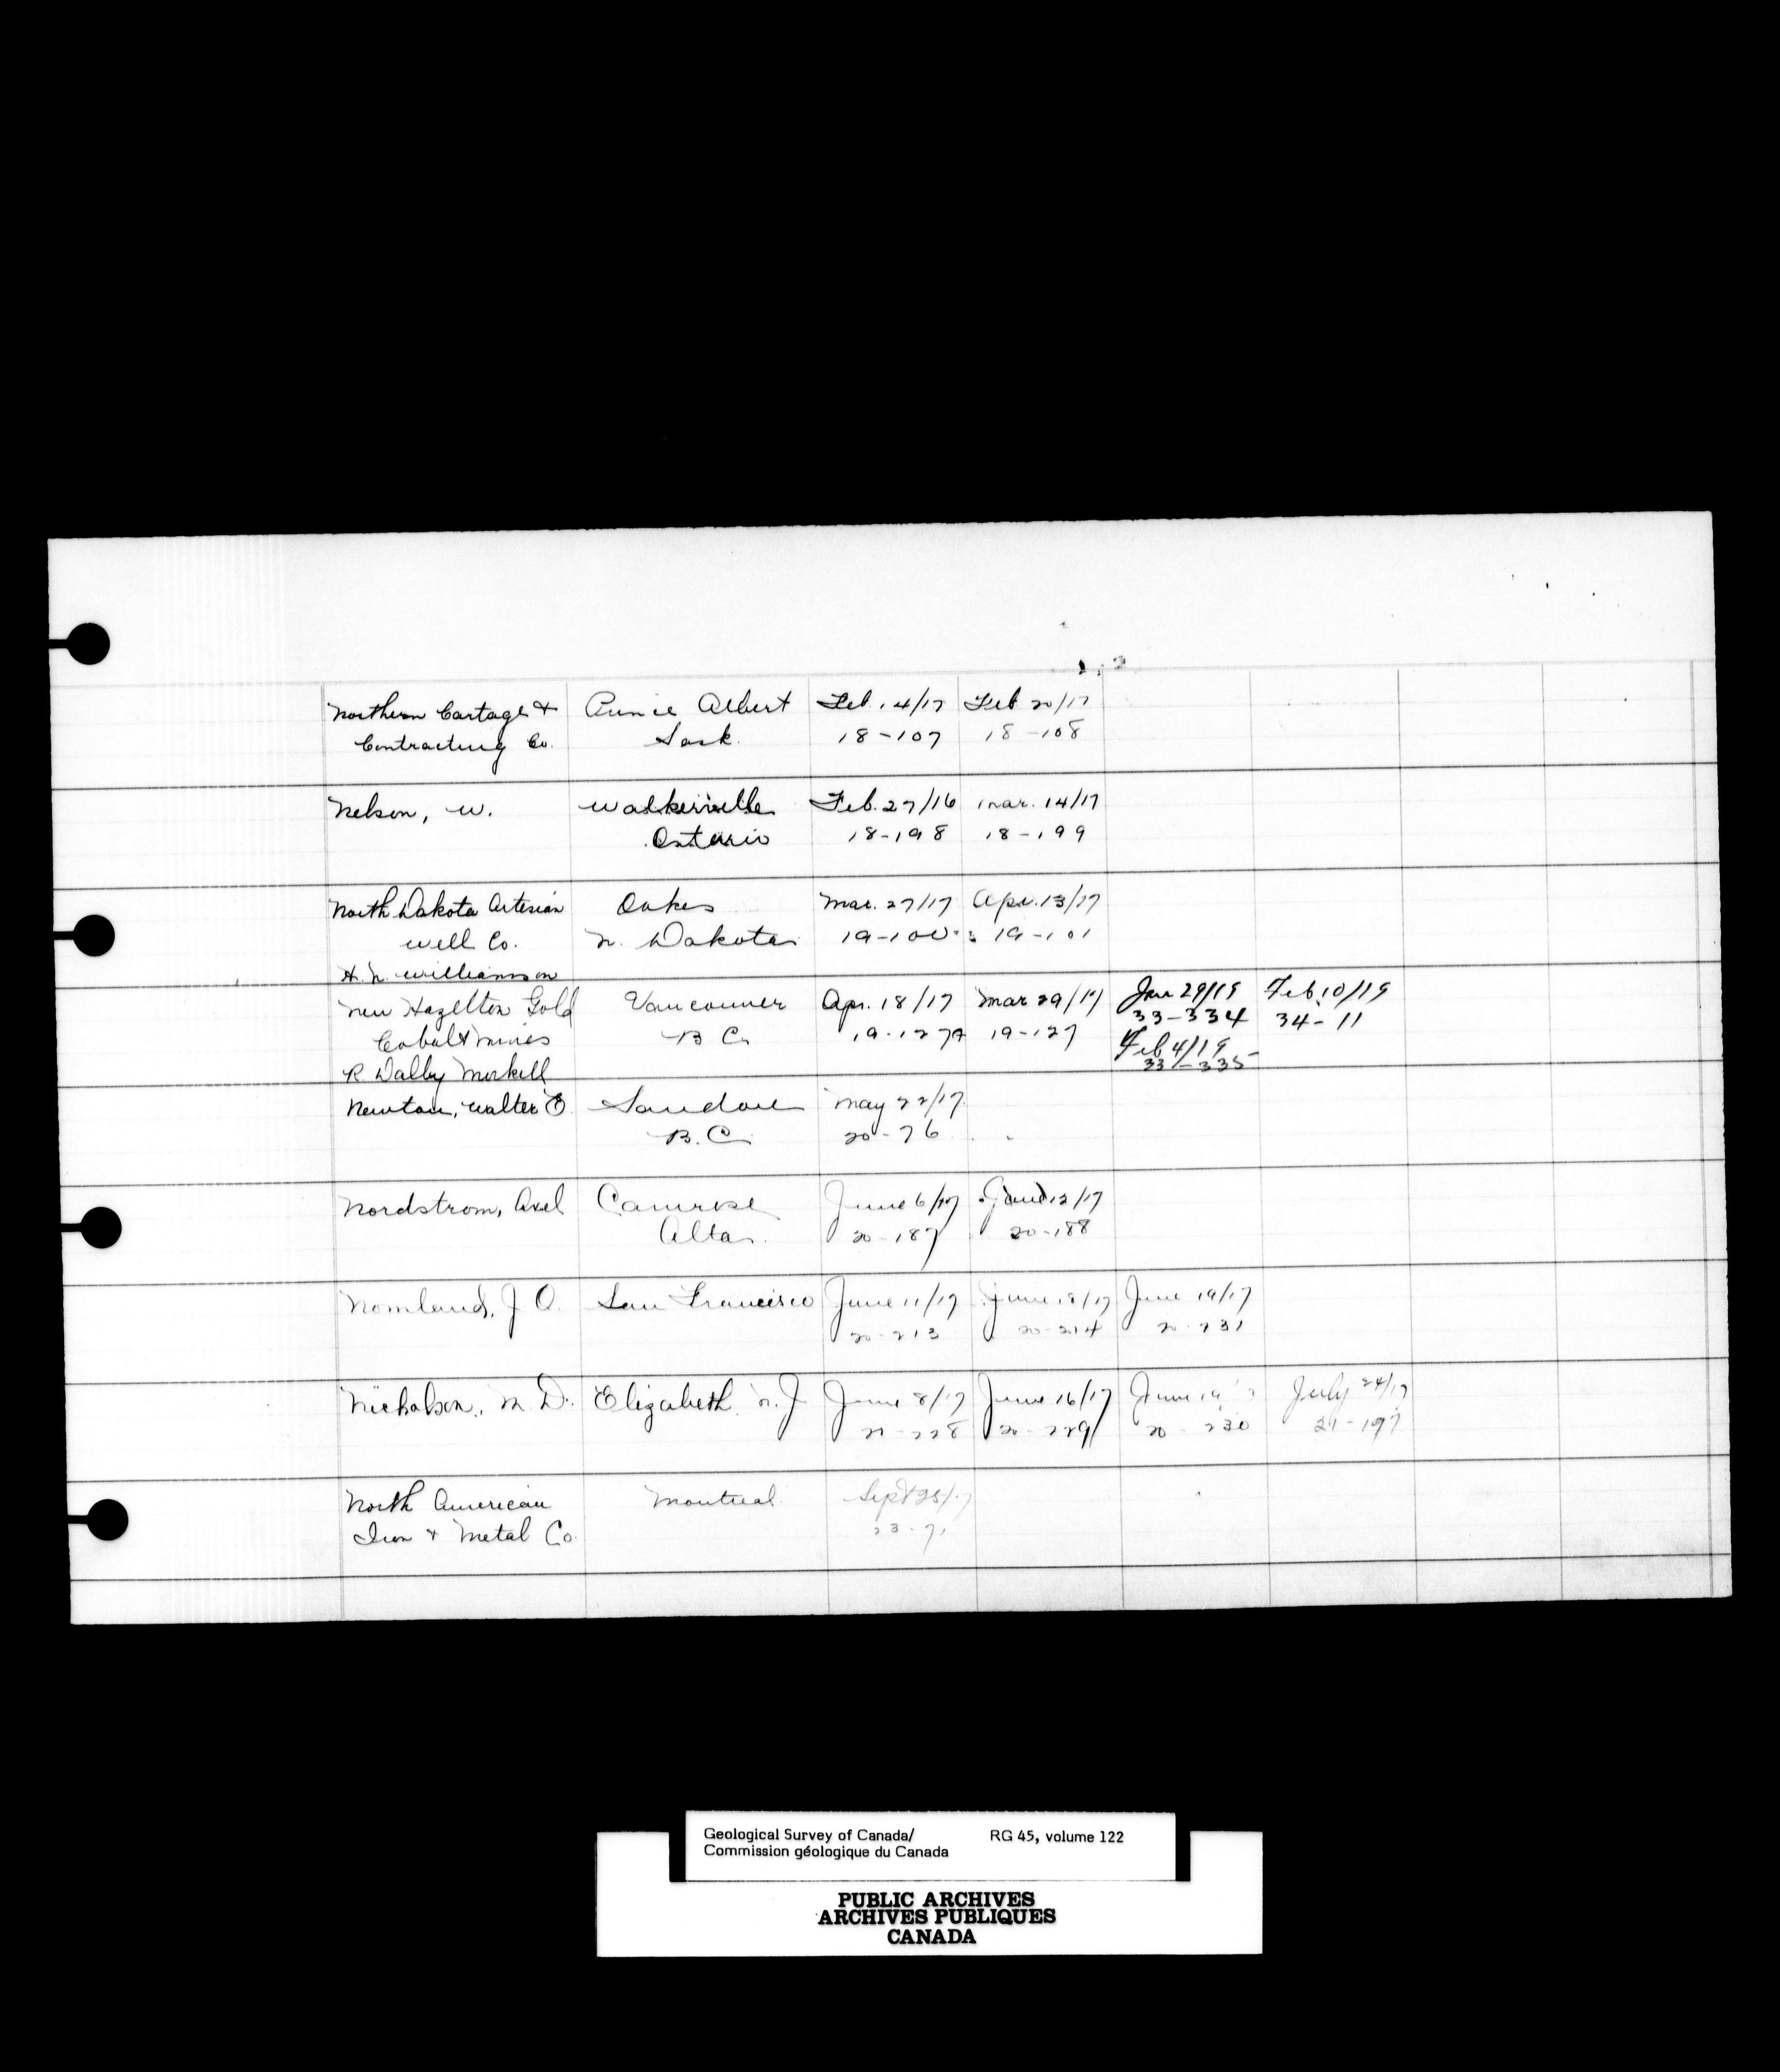 Northern Cartage & Prince Albert Feb. 14/17 Feb 20/17
Contracting Co. Sask. 18-107 18-108
Nelson, W. Walkerville Feb. 27/16 Mar. 14/17
Ontario 18-198 18-199
North Dakota Artesian Oakes Mar. 27/17 Apr. 13/17
Well Co. N. Dakota 19-100 19-101
H. N. Williamson
New Hazelton Gold Vancouver Apr. 18/17 Mar 29/17 Jan 29/19 Feb. 10/19
Cobalt Mines B C. 19-127A 19-127 33-334 34-11
R Dalby Morkill Feb 4/19
33-335
Newton, Walter E. Sandon May 22/17
B.C. 20-76
Nordstrom, Axel Camrose June 6/17 June 12/17
Alta. 20-187 20-188
Nomland, J O. San Francisco June 11/17 June 18/17 June 19/17
20-213 20-214 20-231
Nicholson, M. D. Elizabeth N. J June 8/17 June 16/17 June 19 July 24/17
228 20-229 20-230 21-197
North American Montreal Sept 25/17
Iron & Metal Co. 23-71
Geological Survey of Canada/ RG 45, volume 122
Commission géologique du Canada
PUBLIC ARCHIVES
ARCHIVES PUBLIQUES
CANADA